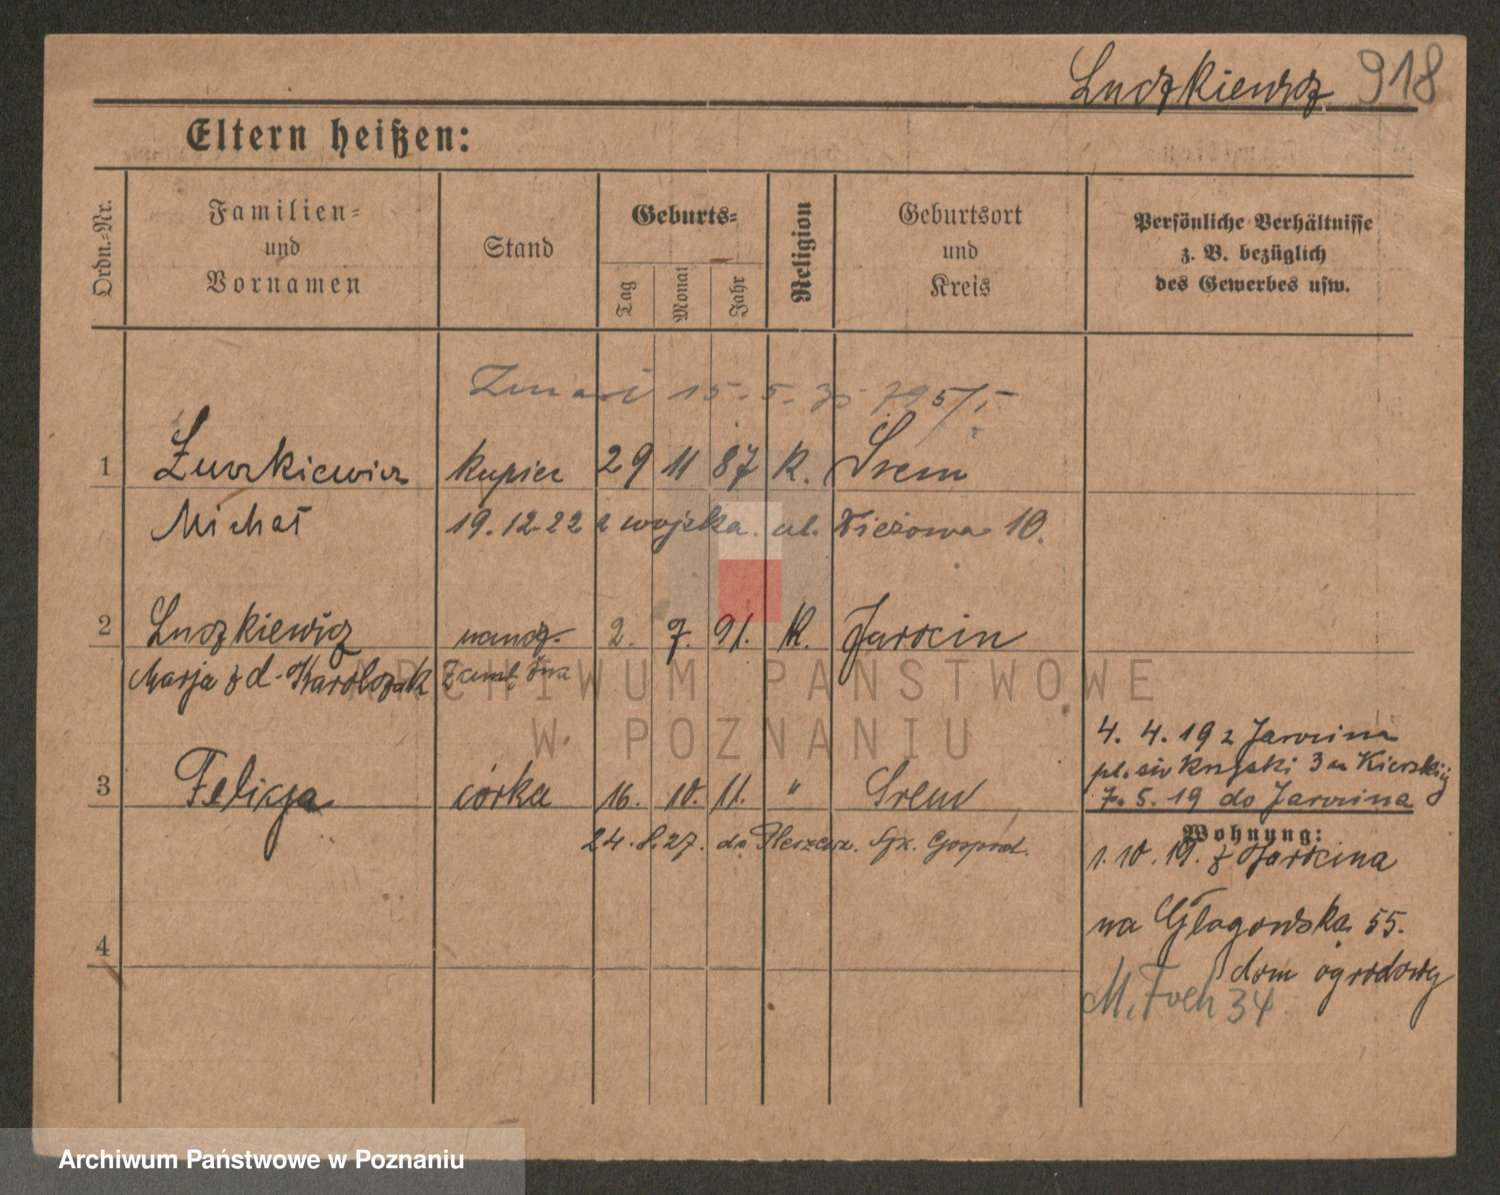 Luczkiewicz 918
Eltern heißen:
Ordn.-Nr.
Familien-
und
Vornamen
Stand
Geburts-
Tag
Monat
Jahr
Religion
Geburtsort
und
Kreis
Persönliche Verhältnisse
z. B. bezüglich
des Gewerbes usw.
Zmarł 15. 5. 35
1 Luczkiewicz kupiec 29 11 87 K. Śrem
Michał 19.12.22 z wojska. ul. Wieżowa 10.
2 Luczkiewicz 2. 7. 91. K. Jarocin
Marja z d. Karolczak
3 Felicja córka 16. 10. 11. " Śrem
24. 8. 27. do Gospod.
4. 4. 19 z Jarocina
7. 5. 19 do Jarocina
Wohnung:
1. 10. 19. z Jarocina
na Głogowska 55.
dom ogrodowy
M. Foch 34
4
ARCHIWUM PAŃSTWOWE
W POZNANIU
Archiwum Państwowe w Poznaniu